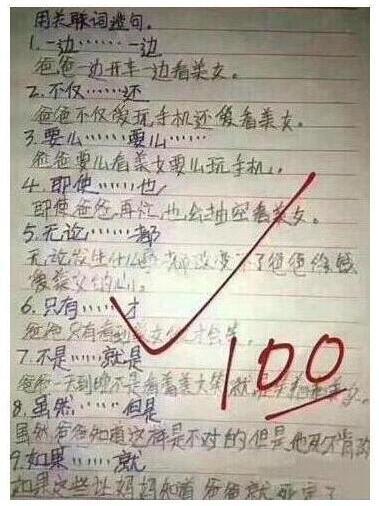 用关联词造句。
1.一边……一边
爸爸一边开车一边看美女。
2.不仅……还
爸爸不仅爱玩手机还爱看美女。
3.要么……要么……
爸爸要么看美女要么玩手机。
4.即使……也
即使爸爸再忙,也会抽空看美女。
5.无论……都
无论发生什么 都改变不了爸爸
爱美女的心。
6.只有……才
爸爸只有看到美女 才会笑。
7.不是……就是
爸爸一天到晚不是看着美女笑就是
8.虽然……但是
虽然爸爸知道这样是不对的但是他死不肯改
9.如果……就
如果这些让妈妈知道爸爸就死定了
100